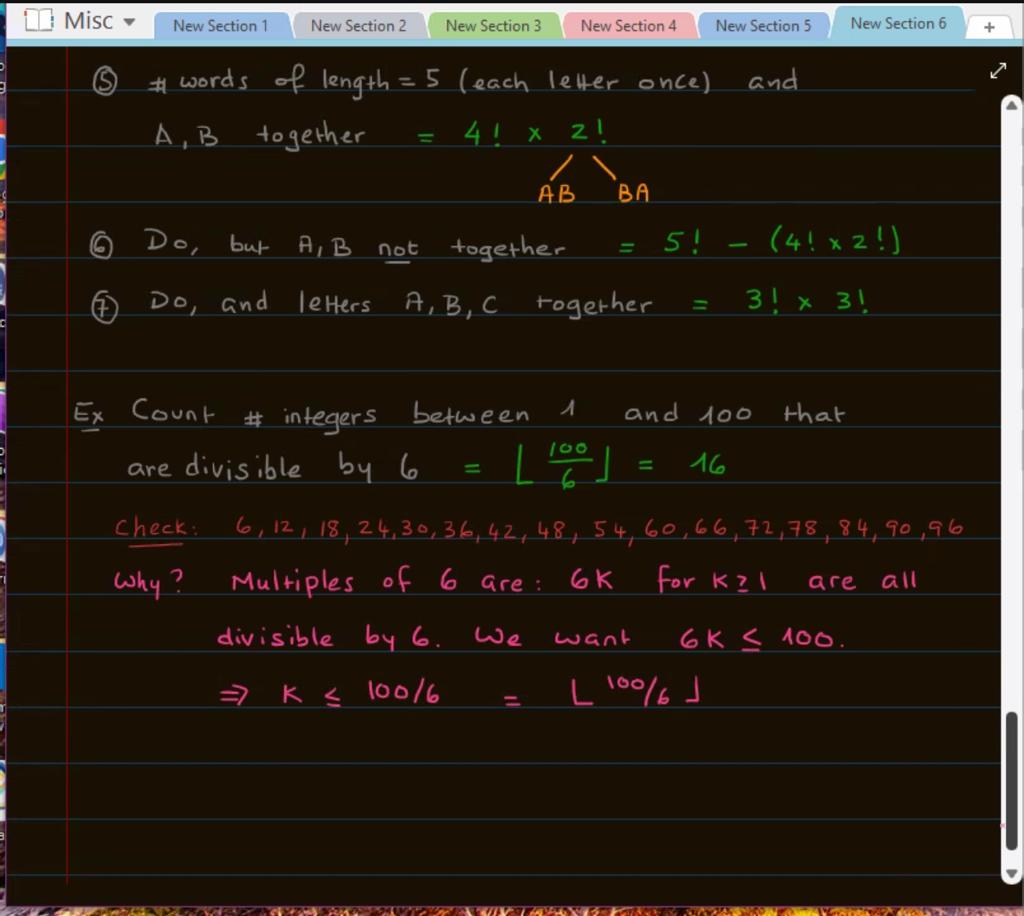 Misc
New Section 1
New Section 2
New Section 3
New Section 4
New Section 5
New Section 6
+
⑤ # words of length = 5 (each letter once) and
A, B together = 4! × 2!
AB BA
⑥ Do, but A, B not together = 5! - (4! × 2!)
⑦ Do, and letters A, B, C together = 3! × 3!
Ex Count # integers between 1 and 100 that
are divisible by 6 = ⌊100/6⌋ = 16
Check: 6, 12, 18, 24, 30, 36, 42, 48, 54, 60, 66, 72, 78, 84, 90, 96
Why? Multiples of 6 are: 6K for K ≥ 1 are all
divisible by 6. We want 6K ≤ 100.
⇒ K ≤ 100/6 = ⌊100/6⌋